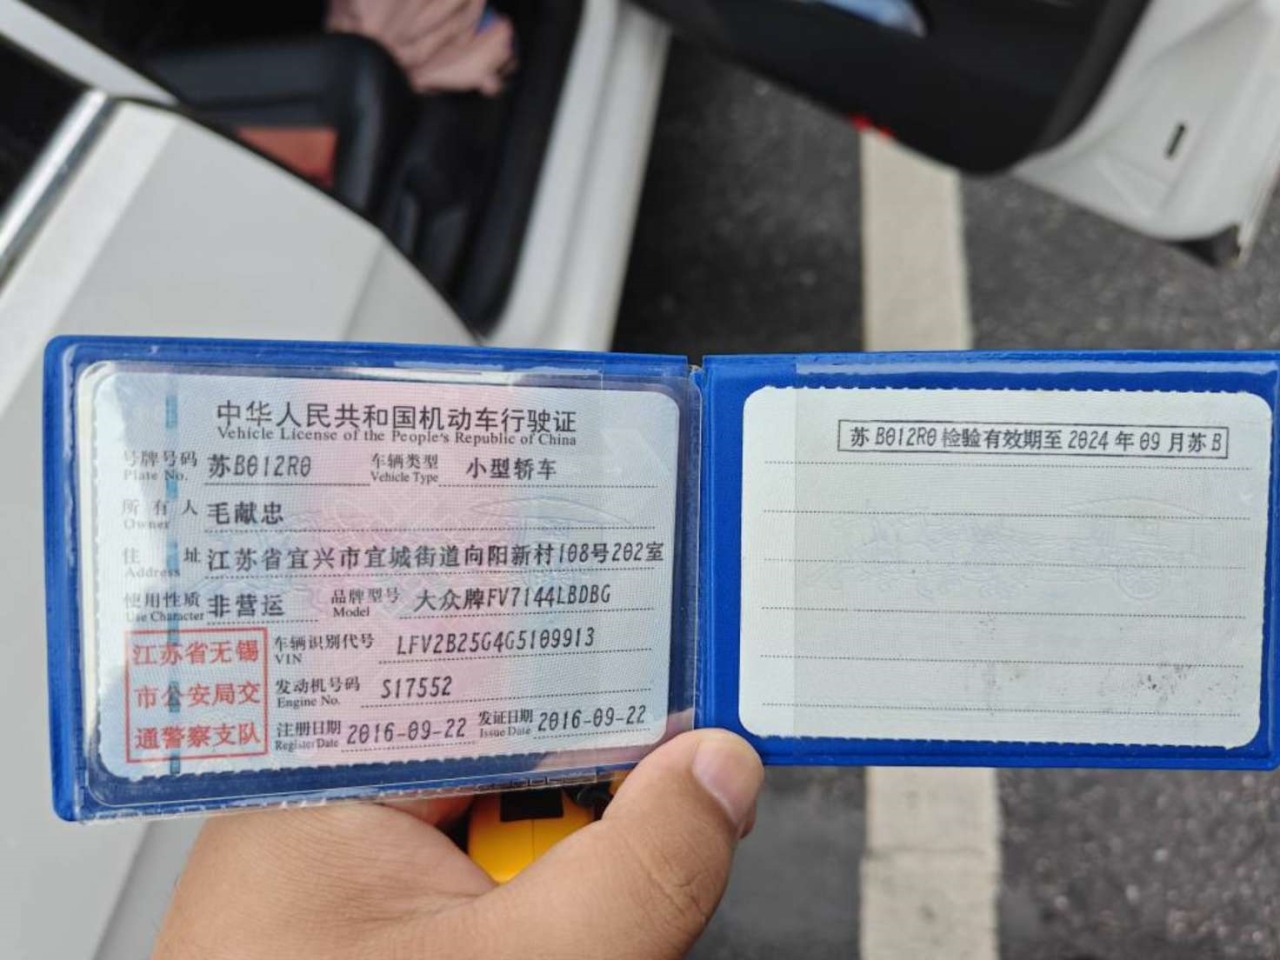 中华人民共和国机动车行驶证
Vehicle License of the People's Republic of China
号牌号码 苏B012R0 车辆类型 小型轿车
Plate No. Vehicle Type
所有人 毛献忠
Owner
住址 江苏省宜兴市宜城街道向阳新村108号202室
Address
使用性质 非营运 品牌型号 大众牌FV7144LBDBG
Use Character Model
江苏省无锡
市公安局交
通警察支队
车辆识别代号 LFV2B25G4G5109913
VIN
发动机号码 S17552
Engine No.
注册日期 2016-09-22 发证日期 2016-09-22
Register Date Issue Date
苏B012R0检验有效期至2024年09月苏B